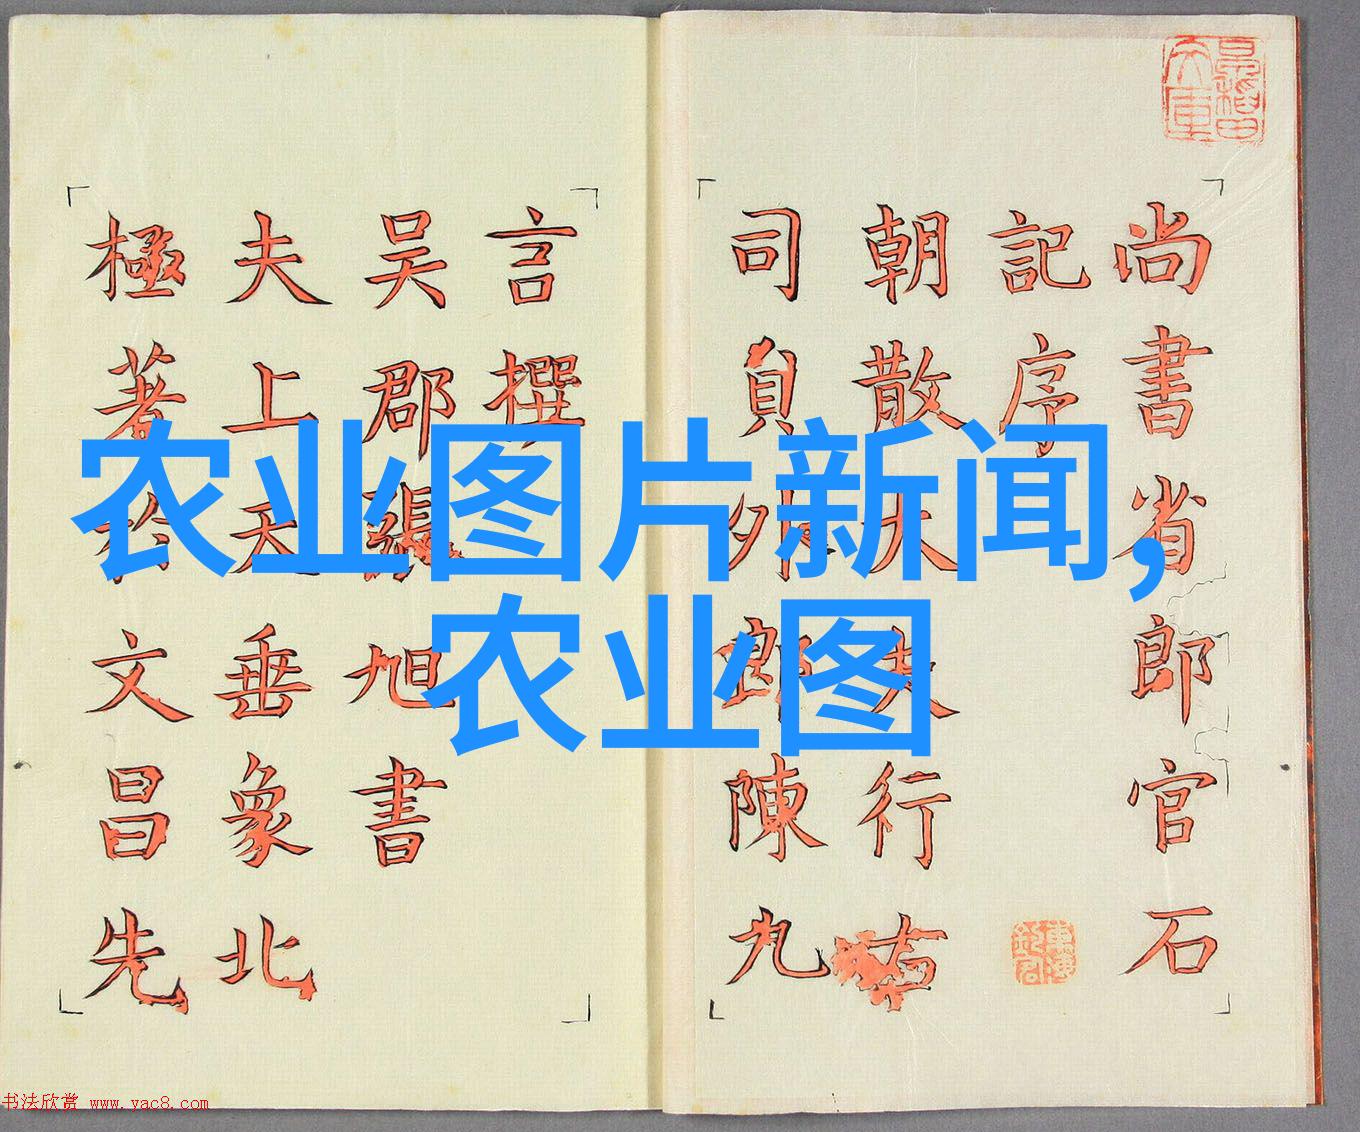 农业图片新闻,
农业图
尚書省郎官石
記序
朝散大夫行右
司貟外郎陳九
言撰
吴郡張旭書
夫上天垂象北
極著於文昌先
书法欣赏 www.yac8.com